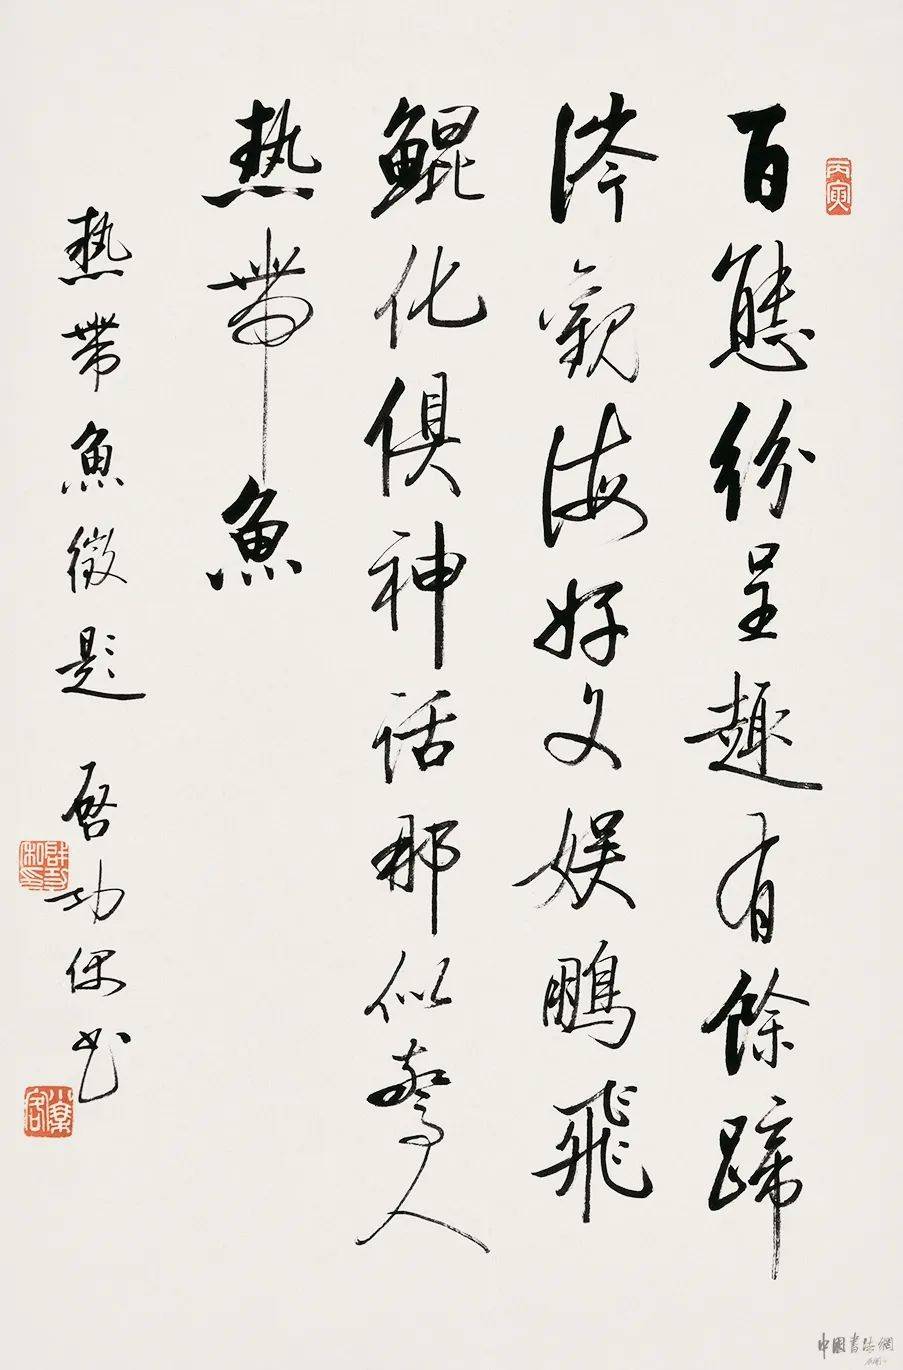 丙寅
百態紛呈趣有餘蹄
涔觀海好文娛鵬飛
鯤化俱神話那似驚人
熱帶魚
熱帶魚徵題 啓功偶書
中国書法網